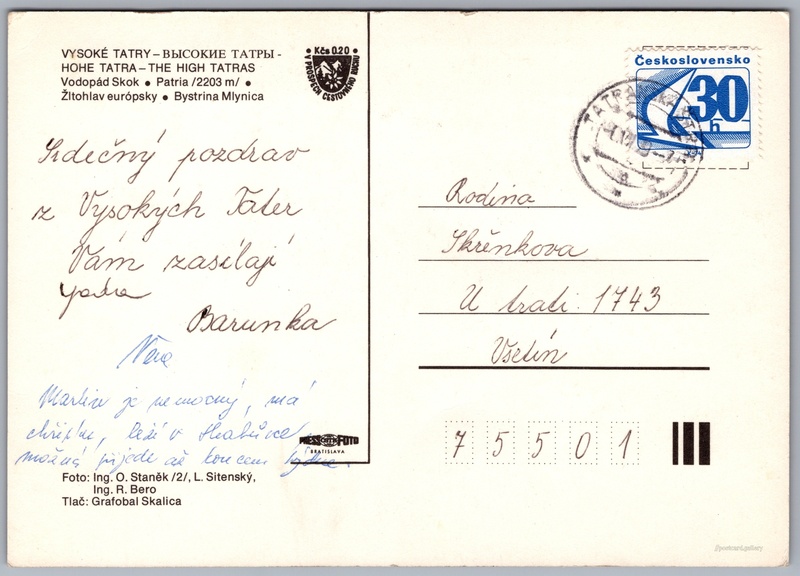 VYSOKÉ TATRY – ВЫСОКИЕ ТАТРЫ -
HOHE TATRA – THE HIGH TATRAS
Vodopád Skok • Patria /2203 m/ •
Žltohlav európsky • Bystrina Mlynica
• Kčs 0.20 •
V PROSPECH CESTOVNÉHO RUCHU
Československo
30
h
Srdečný pozdrav
z Vysokých Tater
Vám zasílají
Barunka
Věra
Martin je nemocný, má
chřipku, leží v
možná přijede až koncem týdne.
PRESSFOTO
BRATISLAVA
Foto: Ing. O. Staněk /2/, L. Sitenský,
Ing. R. Bero
Tlač: Grafobal Skalica
Rodina
Skřenkova
U trati 1743
Vsetín
75501